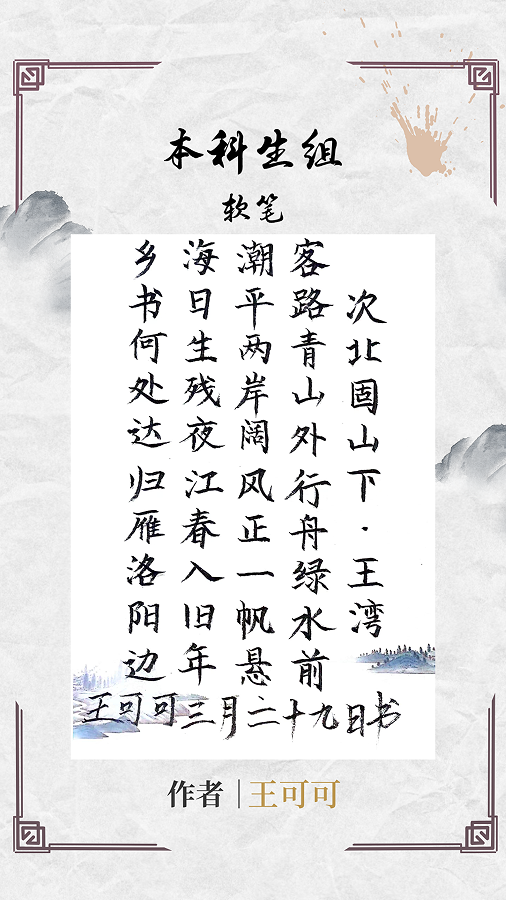 本科生组
软笔
次北固山下·王湾
客路青山外行舟绿水前
潮平两岸阔风正一帆悬
海日生残夜江春入旧年
乡书何处达归雁洛阳边
王可可三月二十九日书
作者｜王可可